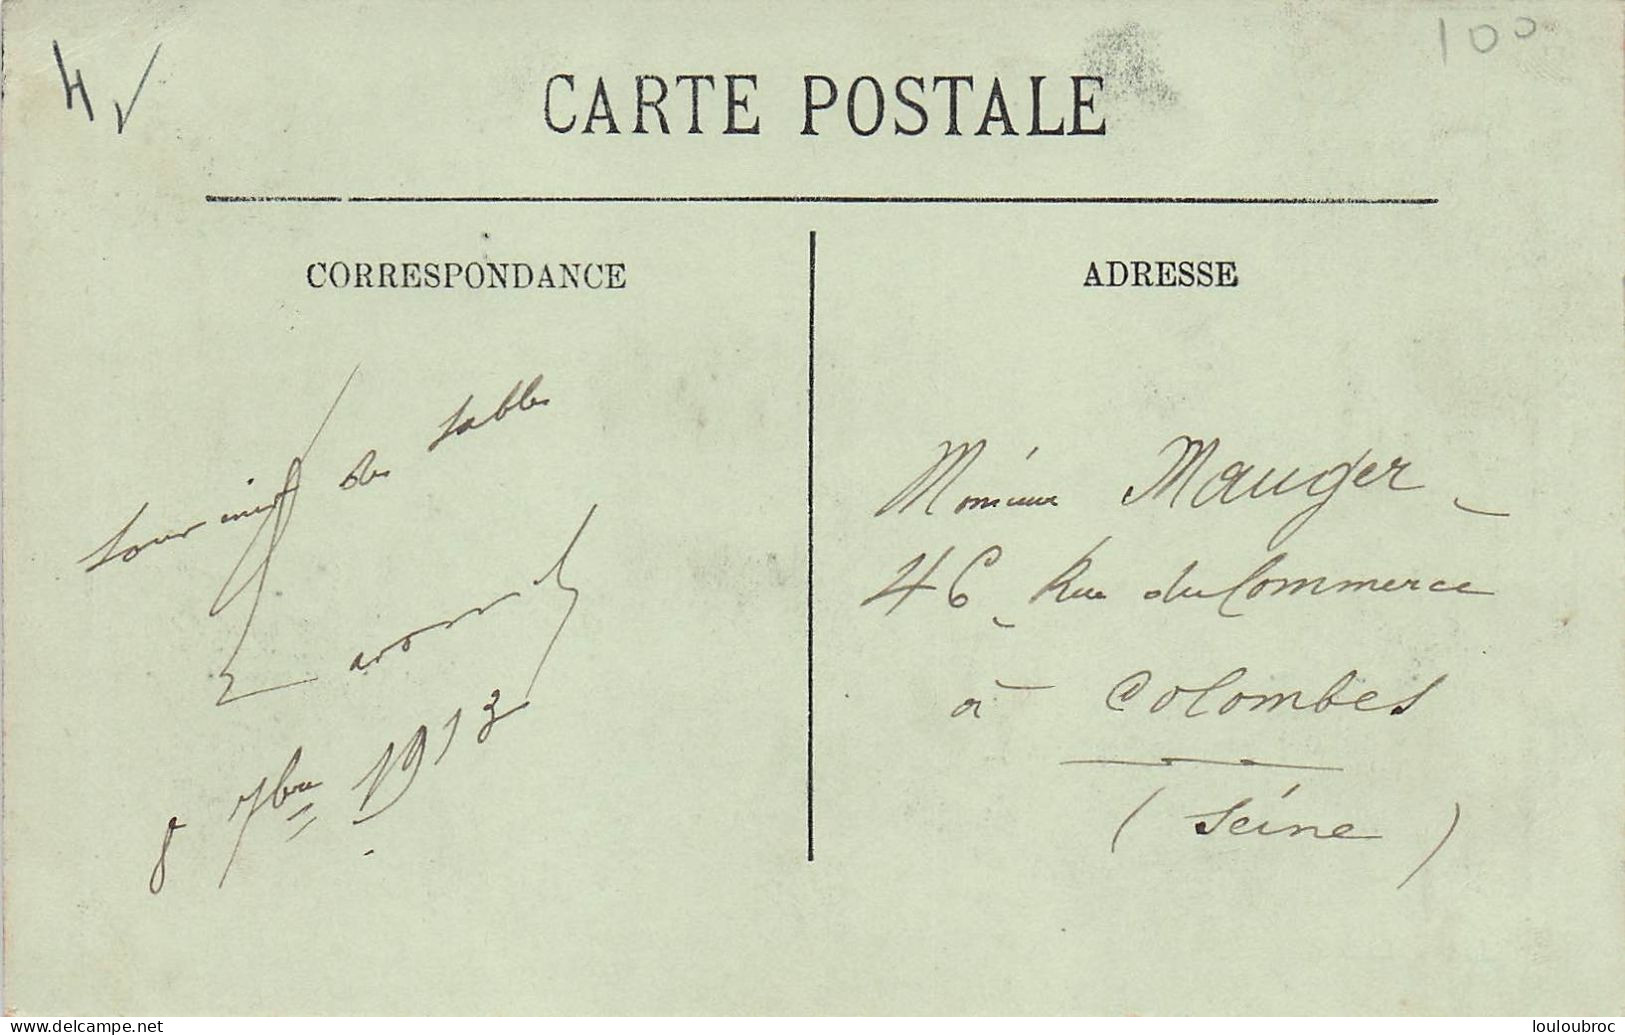 4
100
CARTE POSTALE
CORRESPONDANCE
ADRESSE
Souvenir des Sables
8 7bre 1913
Monsieur Mauger
46 Rue du Commerce
à Colombes
(Seine)
www.delcampe.net
louloubroc